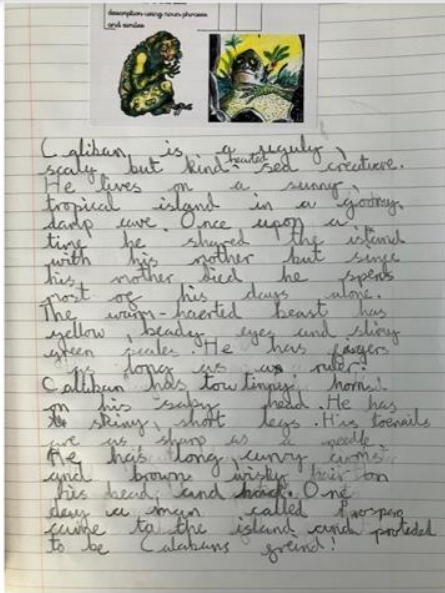 description using noun phrases
and similes
Caliban is a uguly,
scaly but kind hearted creature.
He lives on a sunny,
tropical island in a gloomy,
damp cave. Once upon a
time he shared the island
with his mother but sinse
his mother died he spens
most of his days alone.
The warm-haerted beast has
yellow, beady eyes and slimy
green scales. He has fingers
as long as a ruler.
Caliban has tow tinny horns
on his scaly head. He has
skiny, short legs. His toenails
are as sharp as a needle.
He has long, curvy arms
and brown wisky hair on
his head and back. One
day a man called Prospero
came to the island and proteded
to be Calabans freind!